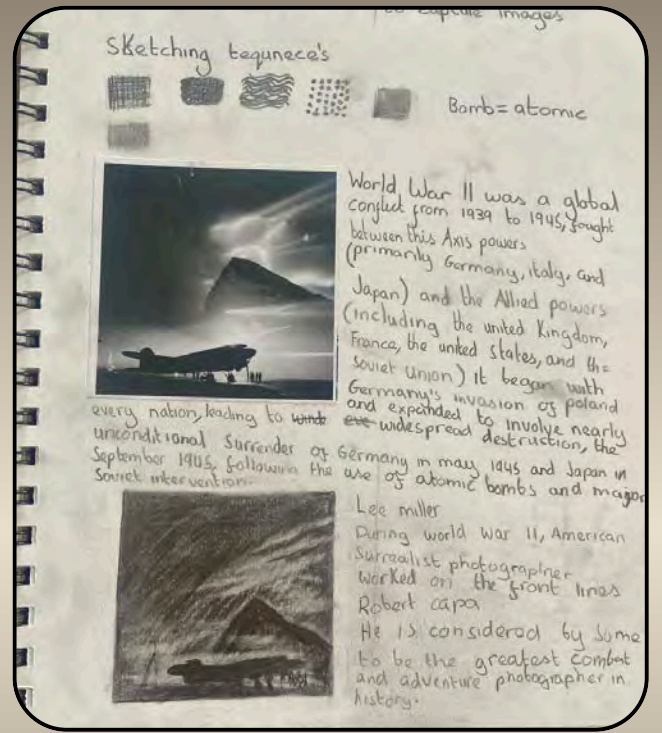 to capture images
Sketching tequnece's
Bomb = atomic
World War II was a global
conflict from 1939 to 1945, fought
between this Axis powers
(primarily Germany, italy, and
Japan) and the Allied powers
(including the united Kingdom,
France, the united states, and the
Soviet union) it began with
Germany's invasion of poland
and expanded to involve nearly
every nation, leading to widespread destruction, the
unconditional surrender of Germany in may 1945 and Japan in
September 1945, following the use of atomic bombs and major
Soviet intervention.
Lee miller
During world war II, American
Surrealist photographer
worked on the front lines
Robert capa
He is considered by some
to be the greatest combat
and adventure photographer in
history.